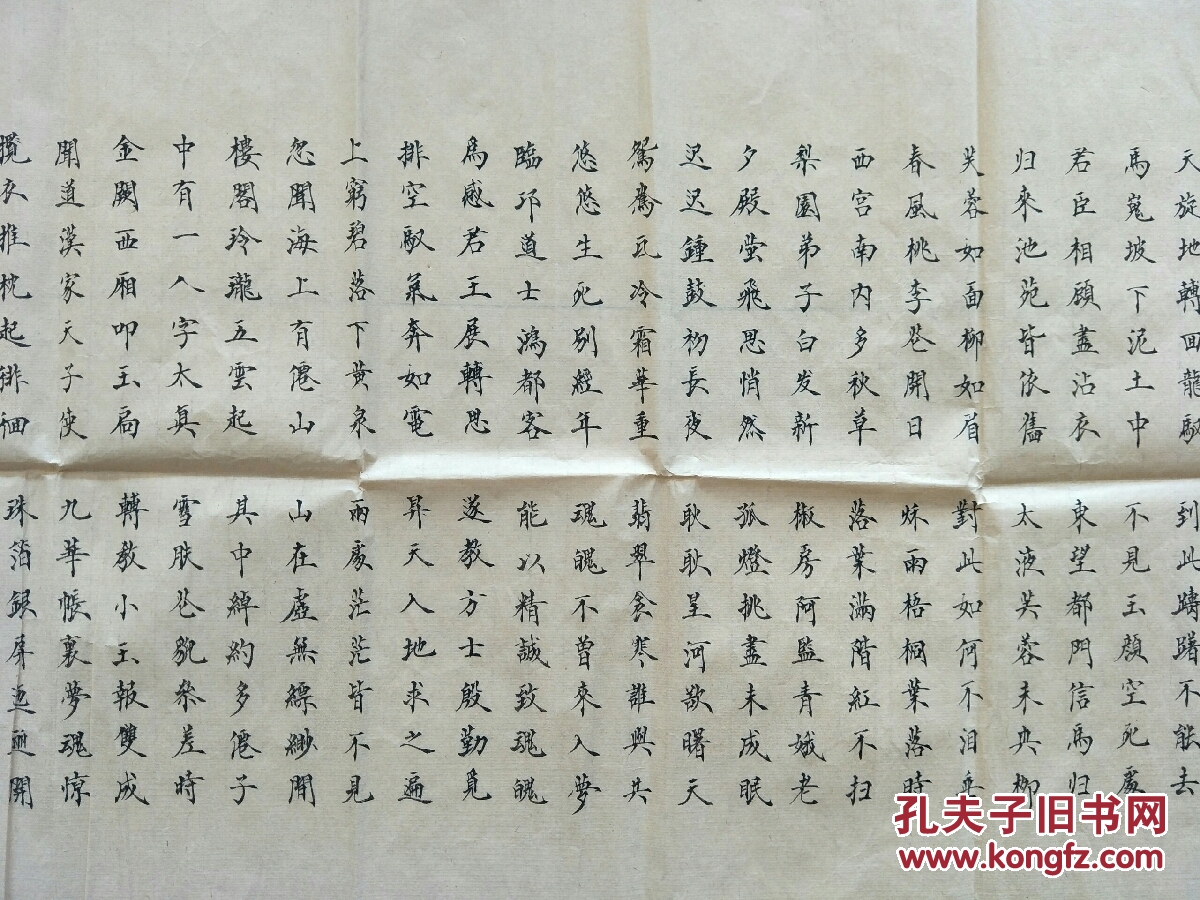 天旋地轉回龍馭 到此躊躇不能去
馬嵬坡下泥土中 不見玉顏空死處
君臣相顧盡沾衣 東望都門信馬归
归來池苑皆依舊 太液芙蓉未央柳
芙蓉如面柳如眉 對此如何不泪垂
春風桃李花開日 秋雨梧桐葉落時
西宫南内多秋草 落葉满階紅不扫
梨園弟子白发新 椒房阿監青娥老
夕殿萤飛思悄然 孤燈挑盡未成眠
迟迟鍾鼓初長夜 耿耿星河欲曙天
鴛鴦瓦冷霜華重 翡翠衾寒誰與共
悠悠生死别經年 魂魄不曾來入夢
臨邛道士鴻都客 能以精誠致魂魄
為感君王展轉思 遂教方士殷勤覓
排空馭氣奔如電 昇天入地求之遍
上窮碧落下黄泉 两處茫茫皆不見
忽聞海上有僊山 山在虛無縹緲間
樓閣玲瓏五雲起 其中綽約多僊子
中有一人字太真 雪肤花貌参差時
金闕西厢叩玉扃 轉教小玉報雙成
聞道漢家天子使 九華帳裏夢魂惊
攬衣推枕起徘徊 珠箔銀屏迤逦開
孔夫子旧书网
www.kongfz.com